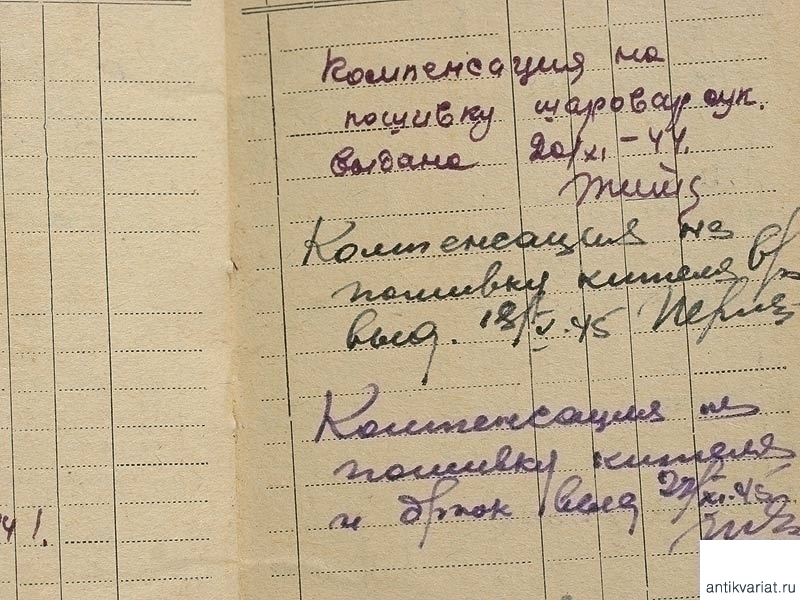 4!.
Компенсация на
пошивку шаровар сук.
выдана 20/XI – 44.
Компенсация на
пошивку кителя х/б
выд. 18/V. 45
Компенсация на
пошивку кителя
и брюк выд 22/XI. 45
antikvariat.ru